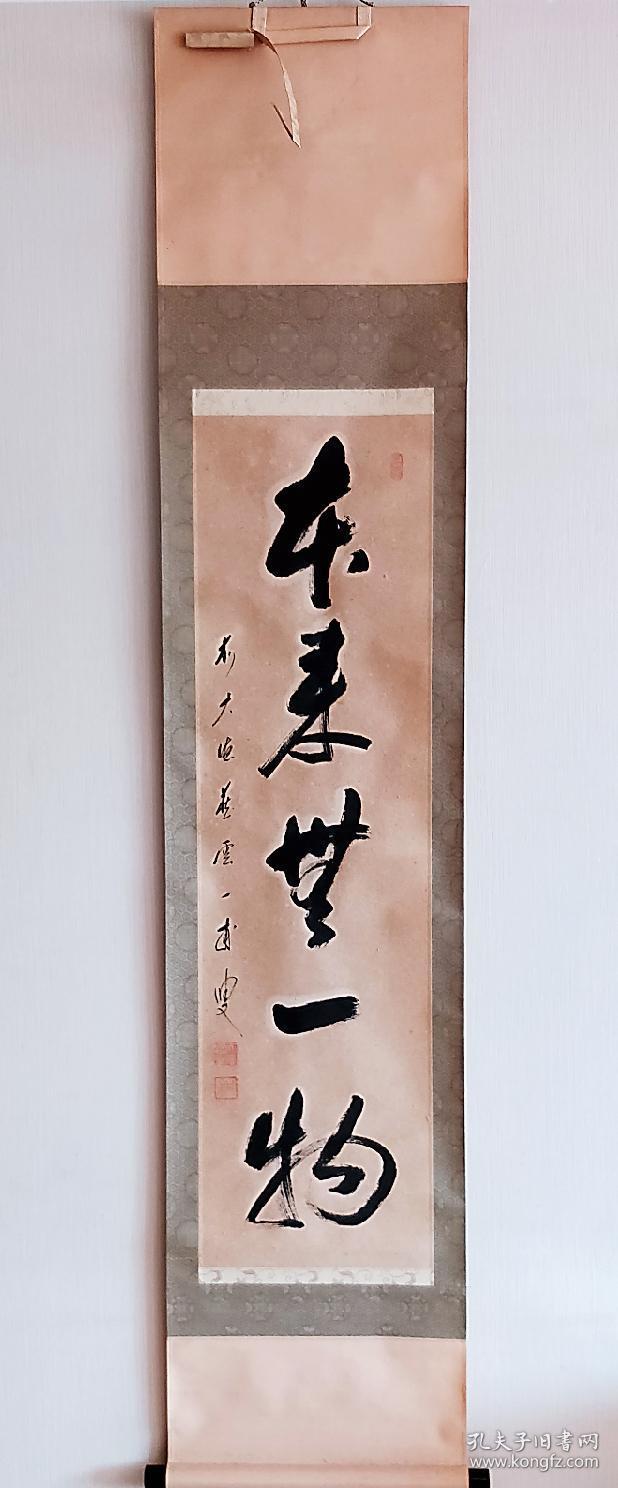 本来無一物
前大德蓁雲一甫叟
孔夫子旧书网
www.kongfz.com